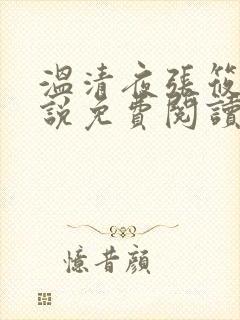 溫清夜張筱
說免費閱讀
憶昔顏